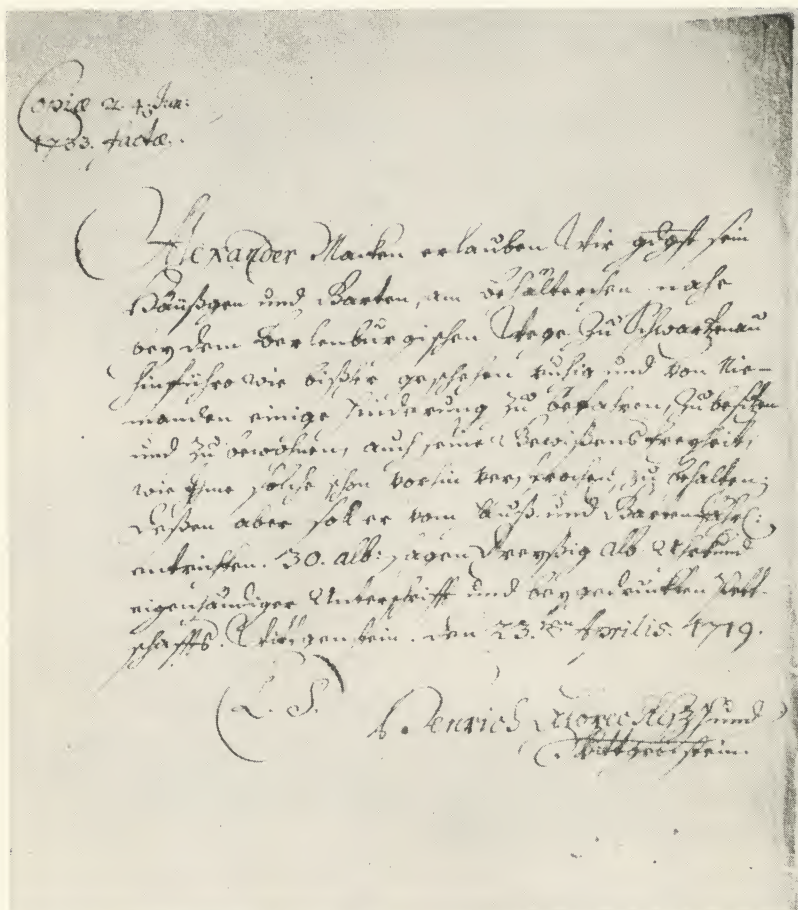 Copiæ 2. 4. Jun:
1733. factæ.
Alexander Macken erlauben Wir gdgst sein
Häußgen und Garten, am Gehälterchen nahe
bey dem Berlenburgischen Wege zu Schwartzenau
hinführo wie bißher geschehen ruhig und von Nie-
manden einige Hinderung zu befahren, zu besitzen
und zu bewohnen, auch seine Gewißensfreyheit,
wie Ihme solche schon vorhin versprochen, zu behalten;
deßen aber soll er vom Hauß und Garten jährl:
entrichten. 30. alb: sagen dreyßig alb Uhrkund
eigenhändiger Unterschrifft und beygedruckten Pett-
schaffts. Wittgenstein. den 23.ten Aprilis. 1719.
(L. S.) Henrich
Wittgenstein.